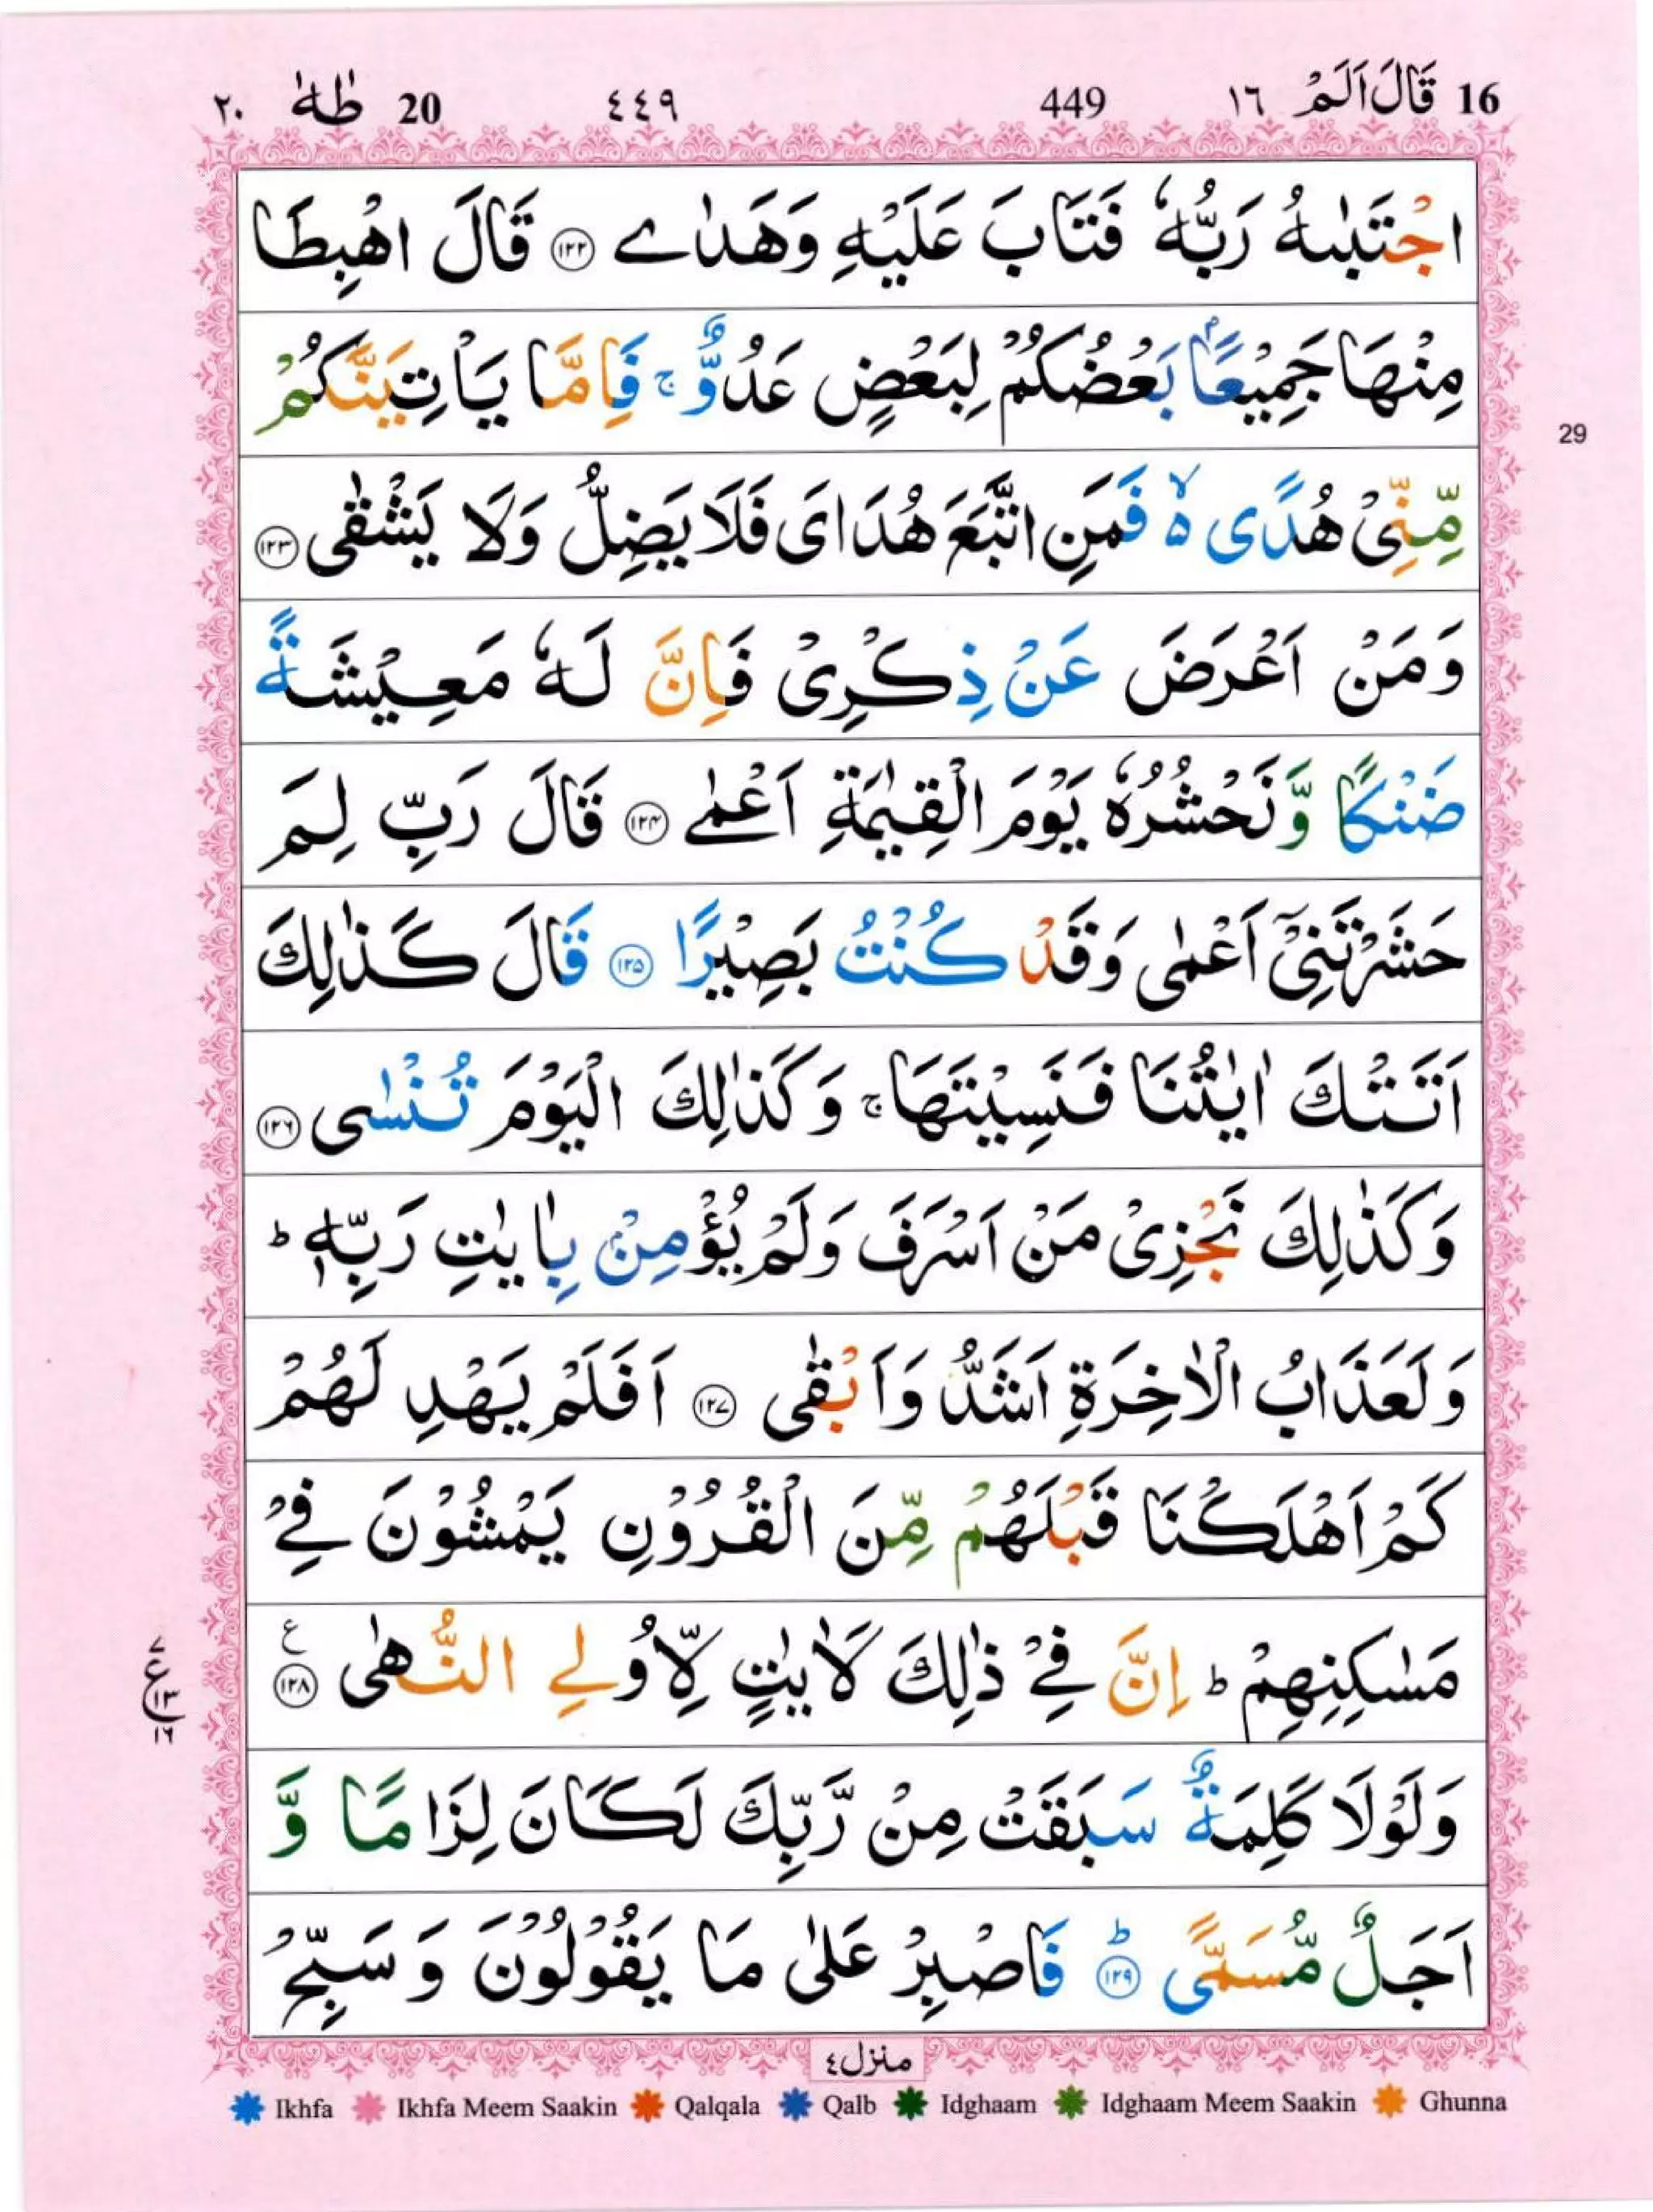 16 قَالَ اَلَمْ ١٦ 449 ٤٤٩ 20 طٰهٰ ٢٠
اجْتَبٰىهُ رَبُّهٗ فَتَابَ عَلَيْهِ وَهَدٰى ۝۱۲۲ قَالَ اهْبِطَا
مِنْهَا جَمِيْعًاۢ بَعْضُكُمْ لِبَعْضٍ عَدُوٌّ ۚ فَاِمَّا يَاْتِيَنَّكُمْ
مِّنِّيْ هُدًى ۙ۬ فَمَنِ اتَّبَعَ هُدَاىَ فَلَا يَضِلُّ وَلَا يَشْقٰى ۝۱۲۳
29
وَمَنْ اَعْرَضَ عَنْ ذِكْرِىْ فَاِنَّ لَهٗ مَعِيْشَةً
ضَنْكًا وَّ نَحْشُرُهٗ يَوْمَ الْقِيٰمَةِ اَعْمٰى ۝۱۲۴ قَالَ رَبِّ لِمَ
حَشَرْتَنِىْۤ اَعْمٰى وَقَدْ كُنْتُ بَصِيْرًا ۝۱۲۵ قَالَ كَذٰلِكَ
اَتَتْكَ اٰيٰتُنَا فَنَسِيْتَهَا ۚ وَكَذٰلِكَ الْيَوْمَ تُنْسٰى ۝۱۲۶
وَكَذٰلِكَ نَجْزِىْ مَنْ اَسْرَفَ وَلَمْ يُؤْمِنْۢ بِاٰيٰتِ رَبِّهٖ ؕ
وَلَعَذَابُ الْاٰخِرَةِ اَشَدُّ وَاَبْقٰى ۝۱۲۷ اَفَلَمْ يَهْدِ لَهُمْ
كَمْ اَهْلَكْنَا قَبْلَهُمْ مِّنَ الْقُرُوْنِ يَمْشُوْنَ فِيْ
مَسٰكِنِهِمْ ؕ اِنَّ فِيْ ذٰلِكَ لَاٰيٰتٍ لِّاُولِي النُّهٰى ۝۱۲۸ ع
٧
ع ١٣
١٦
وَلَوْلَا كَلِمَةٌ سَبَقَتْ مِنْ رَّبِّكَ لَكَانَ لِزَامًا وَّ
اَجَلٌ مُّسَمًّى ؕ ۝۱۲۹ فَاصْبِرْ عَلٰى مَا يَقُوْلُوْنَ وَ سَبِّحْ
منزل٤
Ikhfa Ikhfa Meem Saakin Qalqala Qalb Idghaam Idghaam Meem Saakin Ghunna